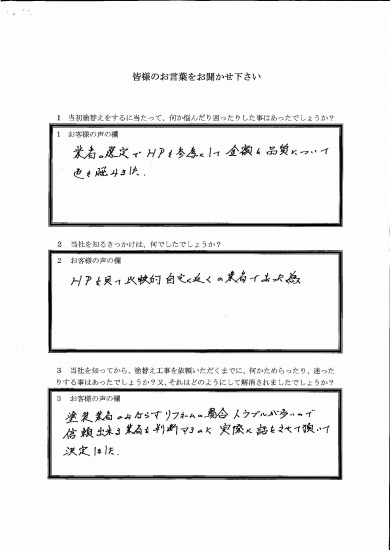 皆様のお言葉をお聞かせ下さい
1 当初塗替えをするに当たって、何か悩んだり困ったりした事はあったでしょうか?
1 お客様の声の欄
業者の選定でHPを参考にして金額と品質について
色を悩みました.
2 当社を知るきっかけは、何でしたでしょうか?
2 お客様の声の欄
HPを見て比較的自宅に近くの業者であった為
3 当社を知ってから、塗替え工事を依頼いただくまでに、何かためらったり、迷った
りする事はあったでしょうか?又、それはどのようにして解消されましたでしょうか?
3 お客様の声の欄
塗装業者のみならずリフォームの場合トラブルが多いので
信頼出来る業者を判断するのに実際に話をさせて頂いて
決定した.